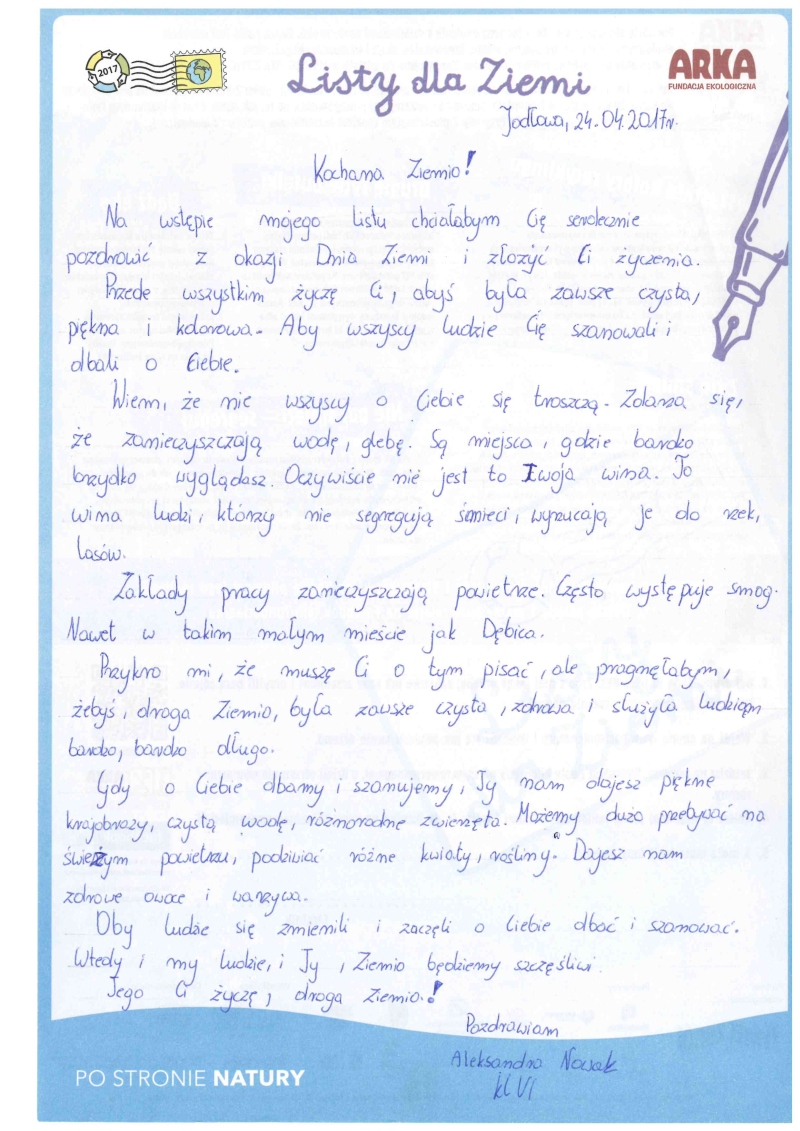 2017
Listy dla Ziemi
ARKA
FUNDACJA EKOLOGICZNA
Jodłowa, 24.04.2017r.
Kochana Ziemio!
Na wstępie mojego listu chciałabym Cię serdecznie
pozdrowić z okazji Dnia Ziemi i złożyć Ci życzenia.
Przede wszystkim życzę Ci, abyś była zawsze czysta,
piękna i kolorowa. Aby wszyscy ludzie Cię szanowali i
dbali o Ciebie.
Wiem, że nie wszyscy o Ciebie się troszczą. Zdarza się,
że zanieczyszczają wodę, glebę. Są miejsca, gdzie bardzo
brzydko wyglądasz. Oczywiście nie jest to Twoja wina. To
wina ludzi, którzy nie segregują śmieci, wyrzucają je do rzek,
lasów.
Zakłady pracy zanieczyszczają powietrze. Często występuje smog.
Nawet w takim małym mieście jak Dębica.
Przykro mi, że muszę Ci o tym pisać, ale pragnęłabym,
żebyś, droga Ziemio, była zawsze czysta, zdrowa i służyła ludziom
bardzo, bardzo długo.
Gdy o Ciebie dbamy i szanujemy, Ty nam dajesz piękne
krajobrazy, czystą wodę, różnorodne zwierzęta. Możemy dużo przebywać na
świeżym powietrzu, podziwiać różne kwiaty, rośliny. Dajesz nam
zdrowe owoce i warzywa.
Oby ludzie się zmienili i zaczęli o Ciebie dbać i szanować.
Wtedy i my ludzie, i Ty, Ziemio będziemy szczęśliwi.
Tego Ci życzę, droga Ziemio.!
Pozdrawiam
Aleksandra Nowak
kl VI
PO STRONIE NATURY